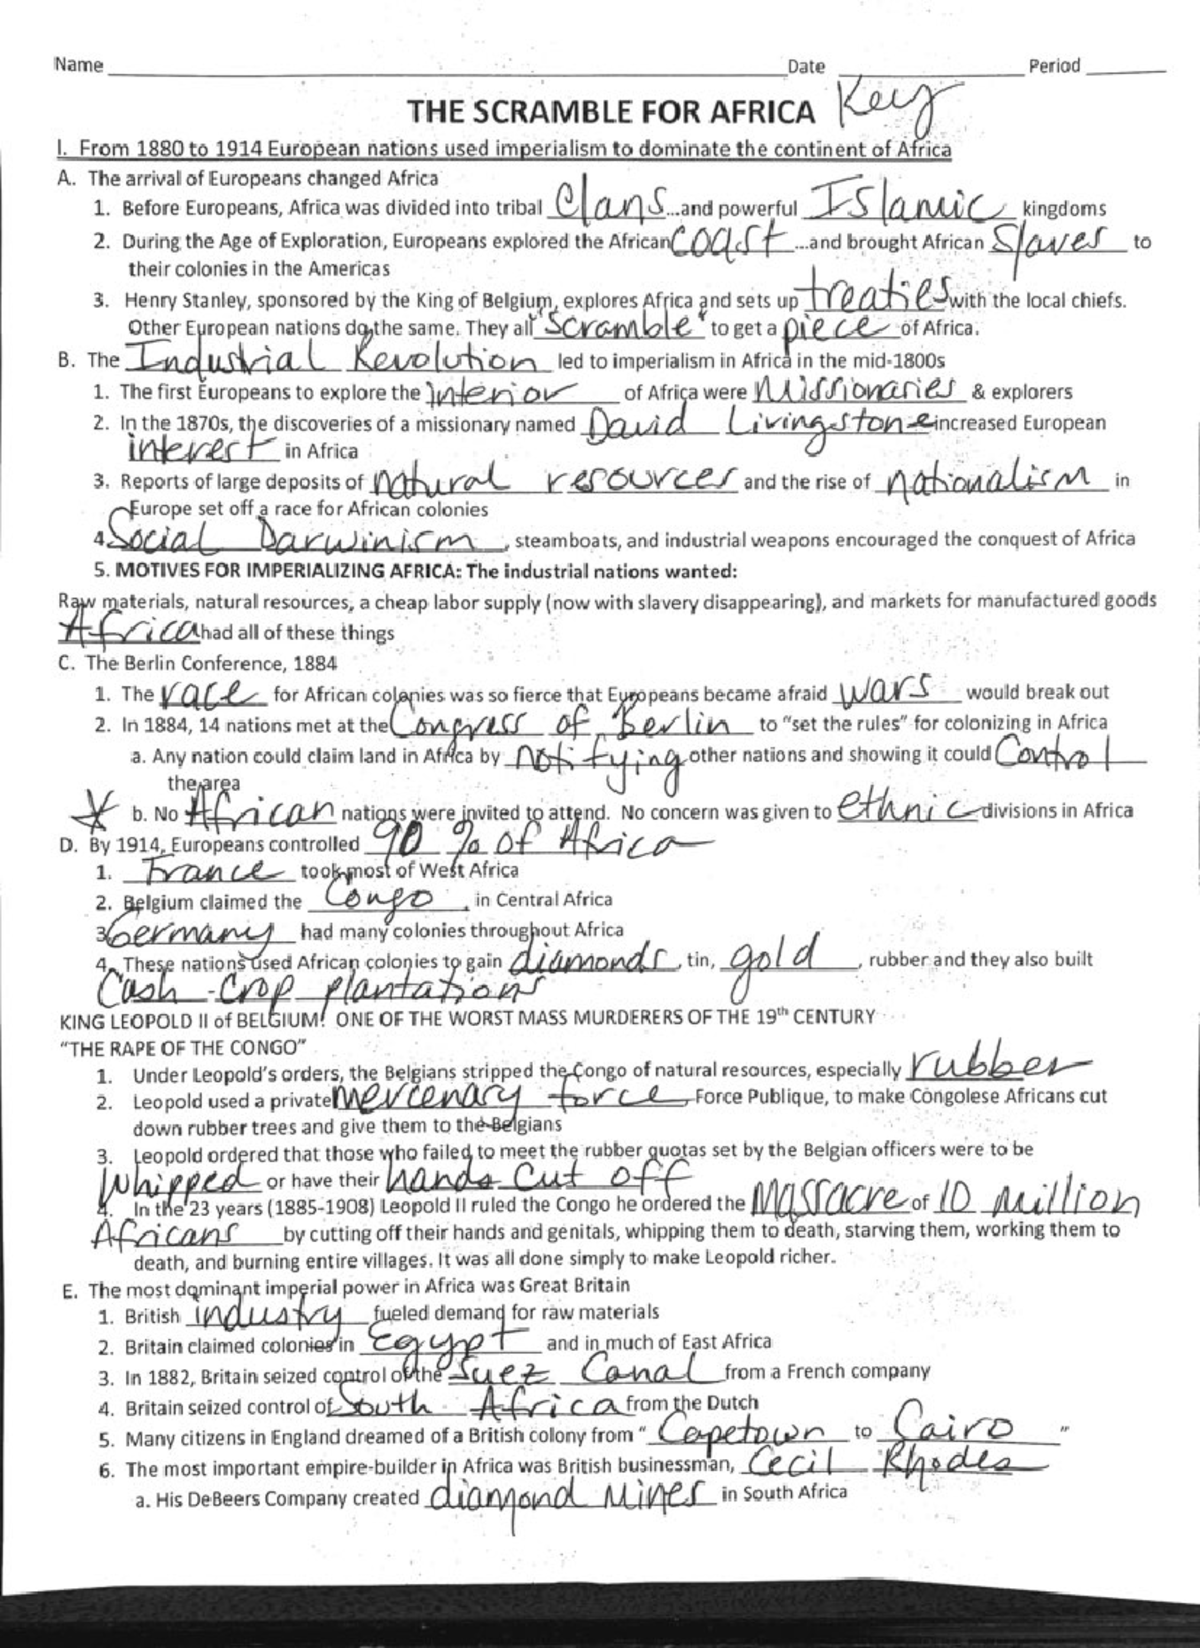 Name ______ Date ______ Period ______
THE SCRAMBLE FOR AFRICA Key
I. From 1880 to 1914 European nations used imperialism to dominate the continent of Africa
A. The arrival of Europeans changed Africa
1. Before Europeans, Africa was divided into tribal Clans...and powerful Islamic kingdoms
2. During the Age of Exploration, Europeans explored the African coast...and brought African Slaves to
their colonies in the Americas
3. Henry Stanley, sponsored by the King of Belgium, explores Africa and sets up treaties with the local chiefs.
Other European nations do the same. They all "Scramble" to get a piece of Africa.
B. The Industrial Revolution led to imperialism in Africa in the mid-1800s
1. The first Europeans to explore the interior of Africa were Missionaries & explorers
2. In the 1870s, the discoveries of a missionary named David Livingstone increased European
interest in Africa
3. Reports of large deposits of natural resources and the rise of nationalism in
Europe set off a race for African colonies
4. Social Darwinism, steamboats, and industrial weapons encouraged the conquest of Africa
5. MOTIVES FOR IMPERIALIZING AFRICA: The industrial nations wanted:
Raw materials, natural resources, a cheap labor supply (now with slavery disappearing), and markets for manufactured goods
Africa had all of these things
C. The Berlin Conference, 1884
1. The race for African colonies was so fierce that Europeans became afraid wars would break out
2. In 1884, 14 nations met at the Congress of Berlin to “set the rules” for colonizing in Africa
a. Any nation could claim land in Africa by notifying other nations and showing it could Control
the area
b. No African nations were invited to attend. No concern was given to ethnic divisions in Africa
D. By 1914, Europeans controlled 90 % of Africa
1. France took most of West Africa
2. Belgium claimed the Congo, in Central Africa
3. Germany had many colonies throughout Africa
4. These nations used African colonies to gain diamonds, tin, gold, rubber and they also built
Cash-Crop plantations
KING LEOPOLD II of BELGIUM! ONE OF THE WORST MASS MURDERERS OF THE 19th CENTURY
“THE RAPE OF THE CONGO”
1. Under Leopold’s orders, the Belgians stripped the Congo of natural resources, especially rubber
2. Leopold used a private mercenary force, Force Publique, to make Congolese Africans cut
down rubber trees and give them to the Belgians
3. Leopold ordered that those who failed to meet the rubber quotas set by the Belgian officers were to be
Whipped or have their hands cut off
4. In the 23 years (1885-1908) Leopold II ruled the Congo he ordered the Massacre of 10 million
Africans by cutting off their hands and genitals, whipping them to death, starving them, working them to
death, and burning entire villages. It was all done simply to make Leopold richer.
E. The most dominant imperial power in Africa was Great Britain
1. British industry fueled demand for raw materials
2. Britain claimed colonies in Egypt and in much of East Africa
3. In 1882, Britain seized control of the Suez Canal from a French company
4. Britain seized control of South Africa from the Dutch
5. Many citizens in England dreamed of a British colony from “Capetown to Cairo”
6. The most important empire-builder in Africa was British businessman, Cecil Rhodes
a. His DeBeers Company created diamond Mines in South Africa